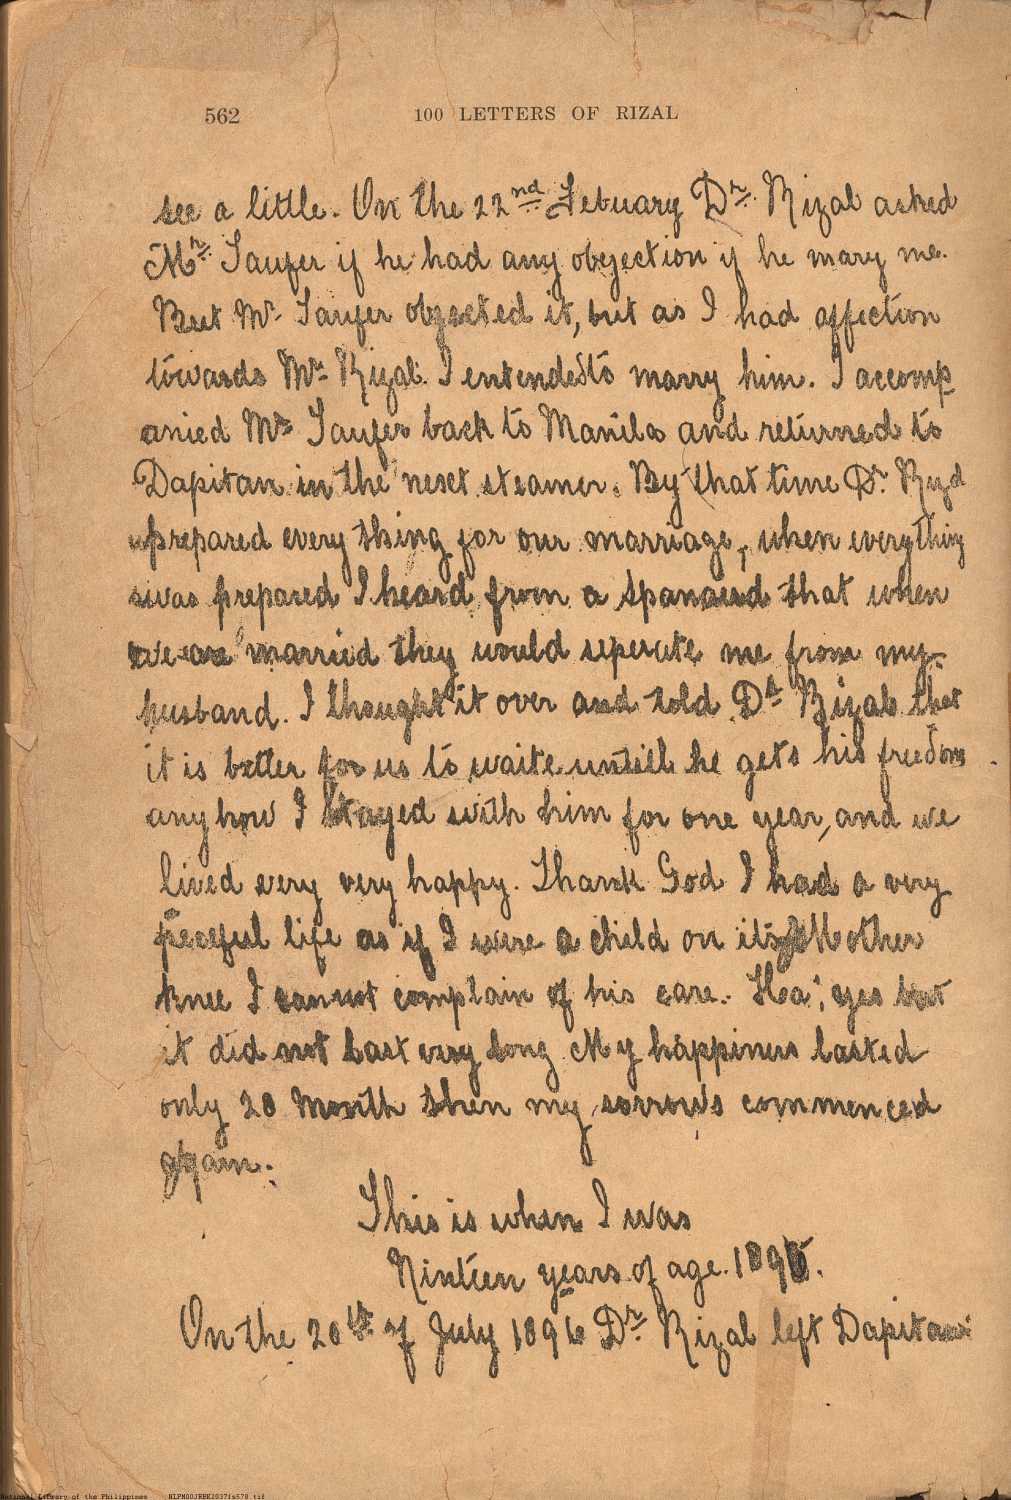 562 100 LETTERS OF RIZAL
see a little. On the 22nd Febuary Dr. Rizal asked
Mr. Taufer if he had any obejection if he mary me.
But Mr. Taufer objected it, but as I had affection
towards Mr. Rizal. I entended to marry him. I accomp
anied Mr. Taufer back to Manila and returned to
Dapitan in the next steamer. By that time Dr. Rizal
prepared every thing for our marriage, when everything
was prepared I heard from a Spaniard that when
we are married they would seperate me from my
husband. I thought it over and told Dr. Rizal that
it is better for us to waite untill he gets his freedom
anyhow I stayed with him for one year, and we
lived very very happy. Thank God I had a very
peaceful life as if I were a child on its Mother
knee I cannot complain of his care. Ha! yes but
it did not Last very long My happiness lasted
only 20 Month then my sorrows commenced
again.
This is when I was
Ninteen years of age. 1895.
On the 20th of July 1896 Dr. Rizal left Dapitan
National Library of the Philippines NLPM00JRBK2037fs578.tif